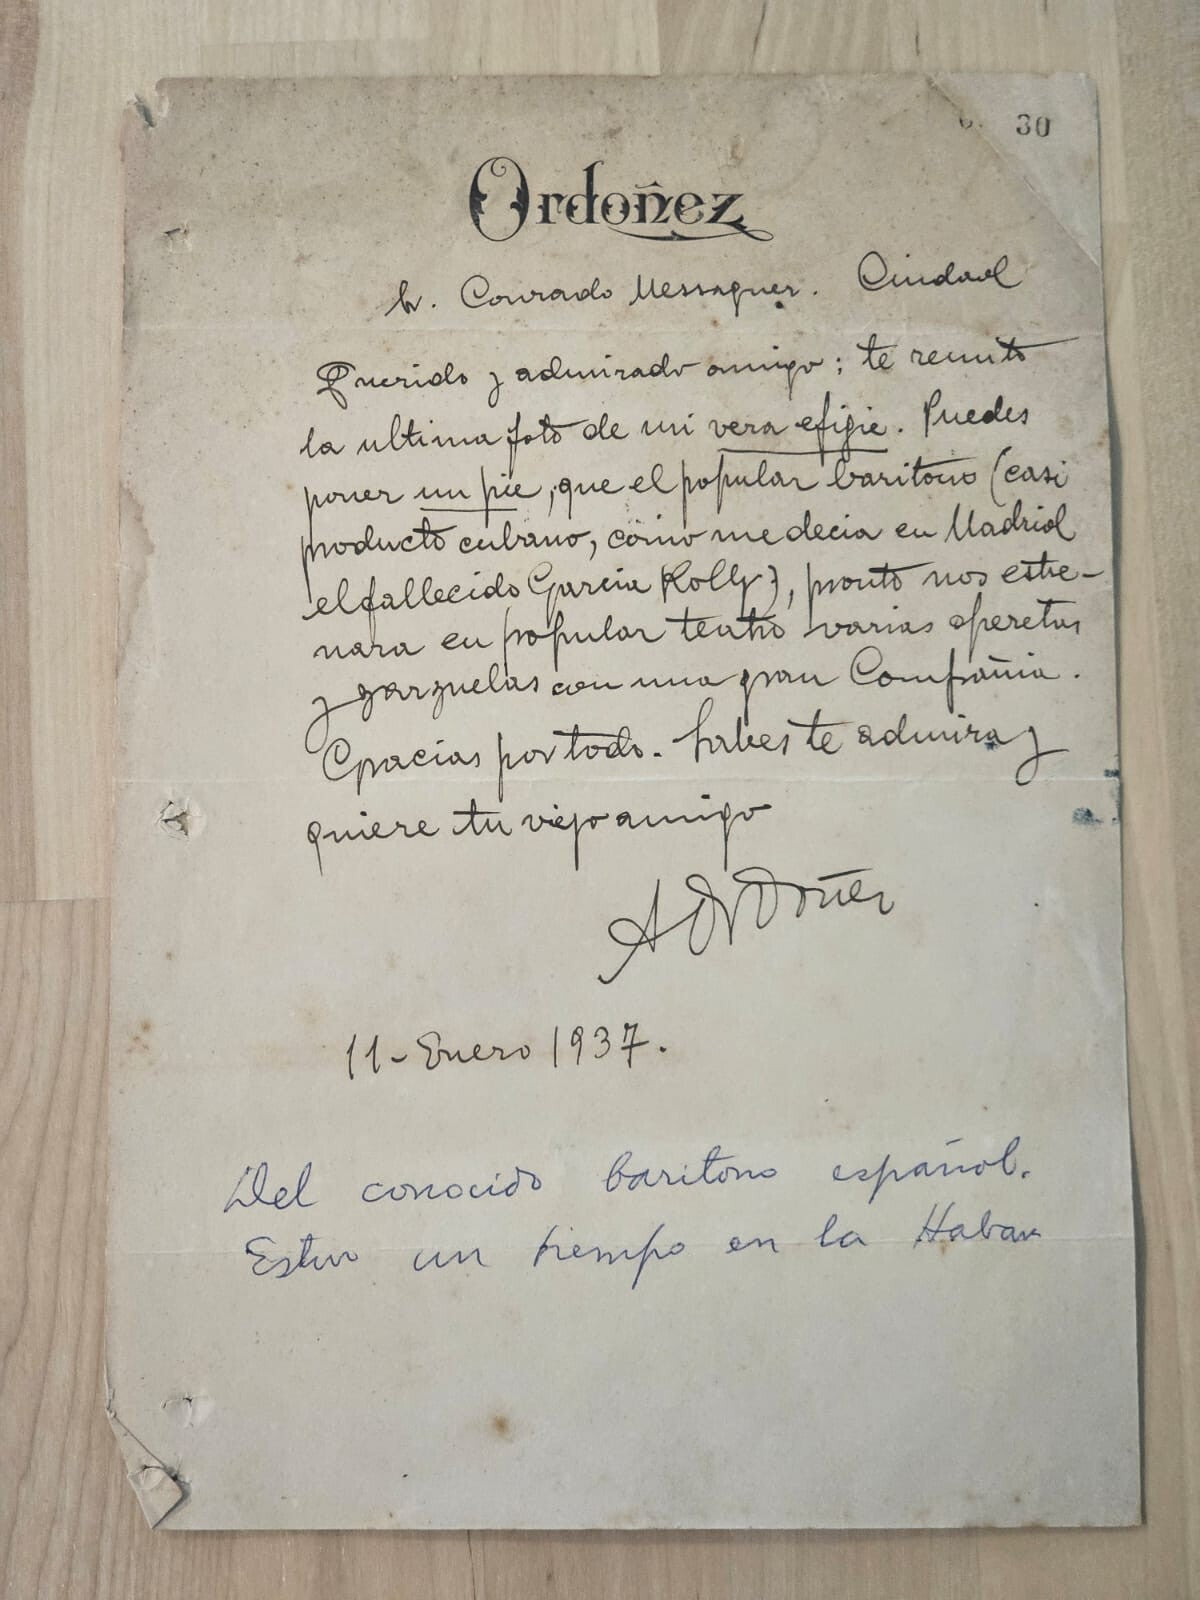 30
Ordoñez
Sr. Conrado Messaguer. Ciudad
Querido y admirado amigo; te remito
la ultima foto de mi vera efigie. Puedes
poner un pie, que el popular baritono (casi
producto cubano, como me decia en Madrid
el fallecido Garcia Kolly), pronto nos estre-
nara en popular teatro varias operetas
y zarzuelas con una gran Compañia.
Gracias por todo. Sabes te admira y
quiere tu viejo amigo
A Ordoñez
11-Enero 1937.
Del conocido baritono español.
Estuvo un tiempo en la Habana